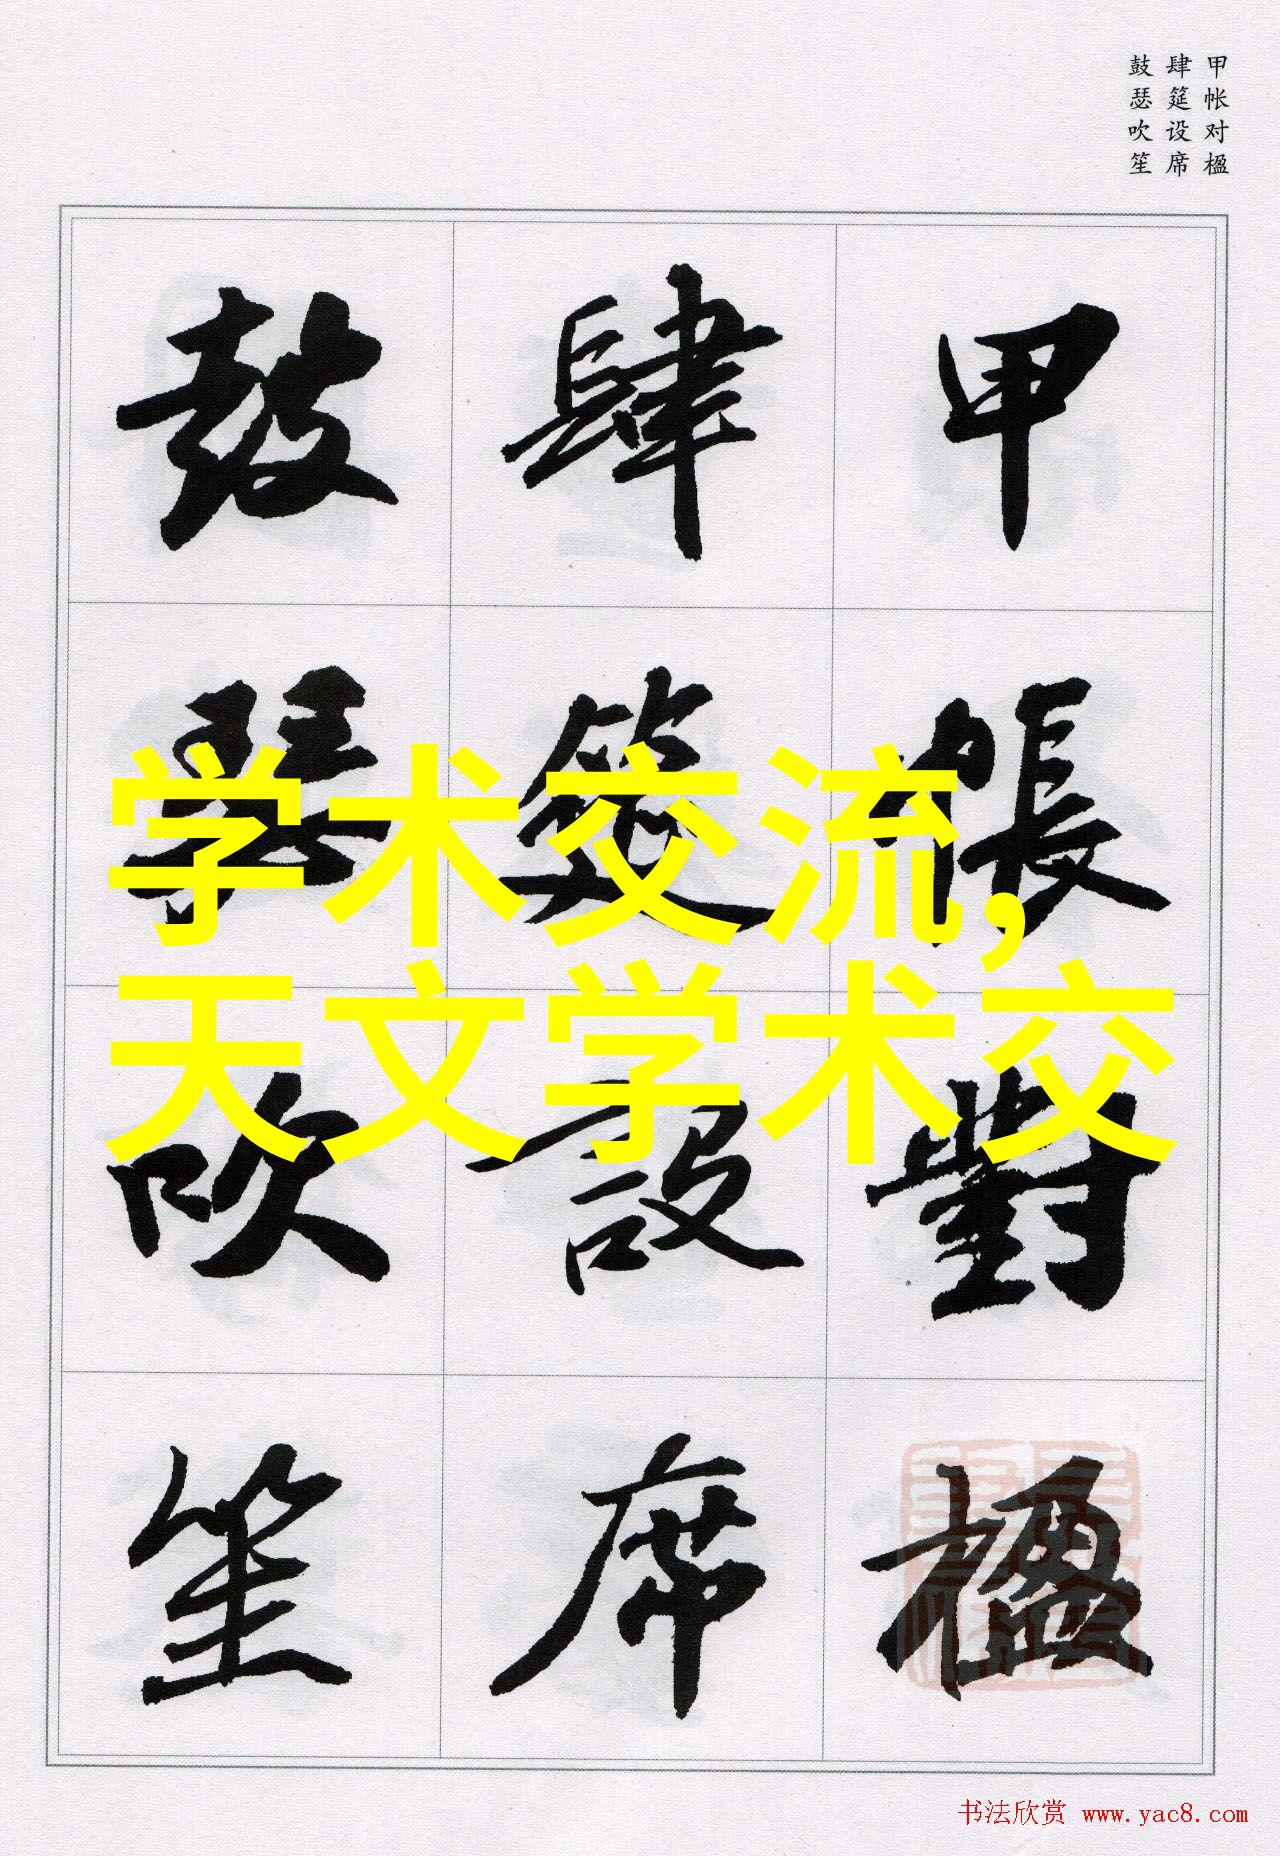 甲帐对楹
肆筵设席
鼓瑟吹笙
甲帳對楹
肆筵設席
鼓瑟吹笙
学术交流,
天文学术交
书法欣赏 www.yac8.com